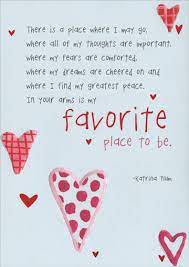 There is a place where I may go,
where all of my thoughts are important,
where my fears are comforted,
where my dreams are cheered on and
where I find my greatest peace.
In your arms is my
favorite
place to be.
-Katrina